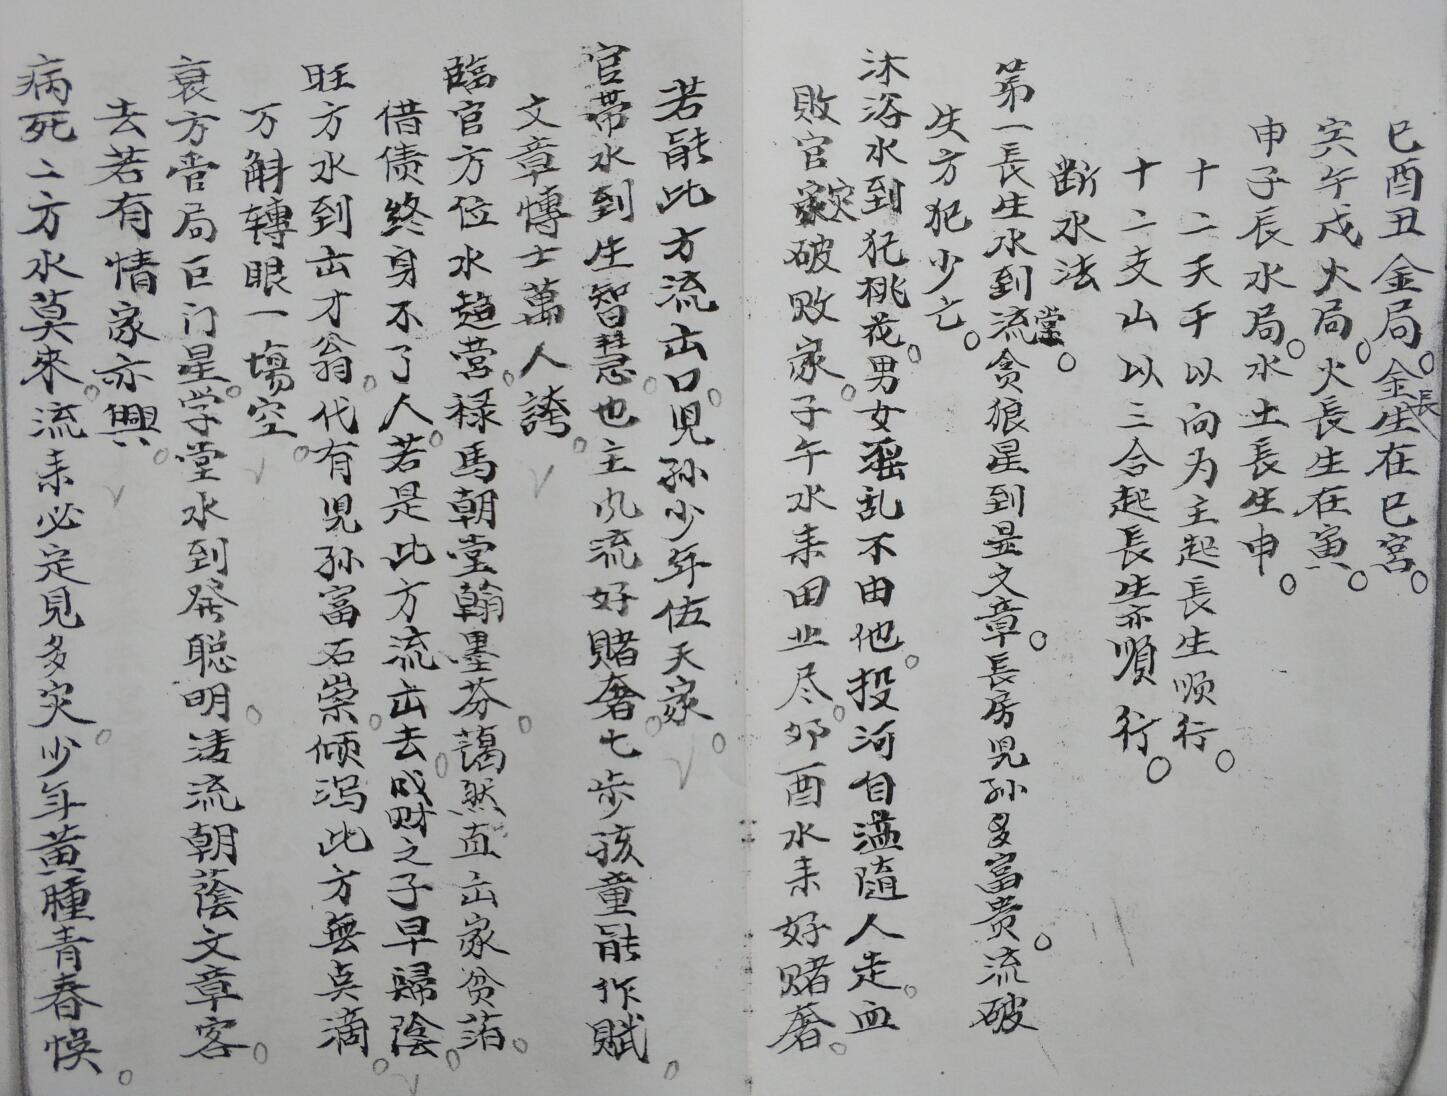 巳酉丑金局。金長生在巳宫。
寅午戌火局。火長生在寅。
申子辰水局。水土長生申。
十二天干以向为主起長生顺行。
十二支山以三合起長生亦順行。
断水法
第一長生水到流堂。贪狼星到显文章。長房児孙多富贵。流破
失方犯少亡。
沐浴水到犯桃花。男女滛乱不由他。投河自溢隨人走。血
敗官灾破败家。子午水耒田业尽。夘酉水耒好赌奢。
若能此方流出口。児孙少年伍夭家。
官帯水到生智慧。也主风流好赌奢。七歩孩童能作賦。
文章慱士萬人誇。
臨官方位水趋营。禄馬朝堂翰墨芬。藹然直出家贫箔。
借债終身不了人。若是此方流出去。成财之子早歸陰。
旺方水到出才翁。代有児孙富石崇。倾泻此方無点滴。
万斛轉眼一塲空。
衰方营局巨门星。学堂水到発聪明。湊流朝蔭文章客。
去若有情家亦興。
病死二方水莫來。流耒必定見多灾。少年黄腫青春悞。